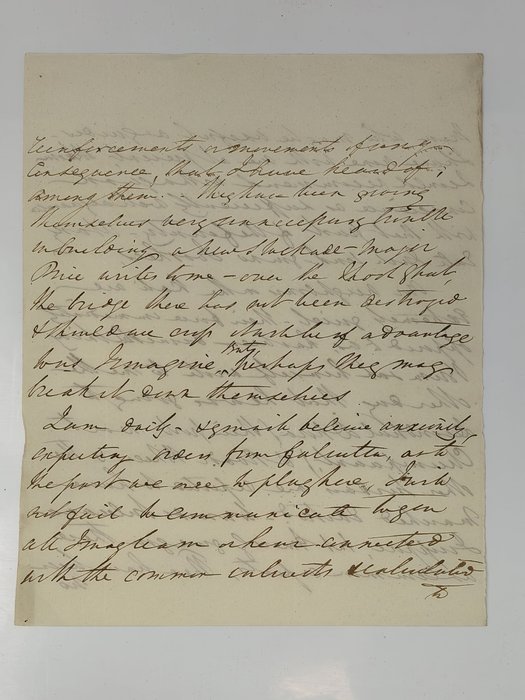 reinforcements or movements of any
Consequence, that I have heard of;
among them. They have been giving
themselves very unnecessary trouble
in building a new Stockade - Major
Price writes to me - over the Ghat,
the bridge there has not been destroyed
& should we cross it will be of advantage
to us I imagine, but perhaps they may
break it down themselves.
I am daily - & you will believe anxiously
expecting orders from Calcutta, as to
the part we are to play here, I will
not fail to communicate to you
all I may learn or hear connected
with the common interests & calculated
to